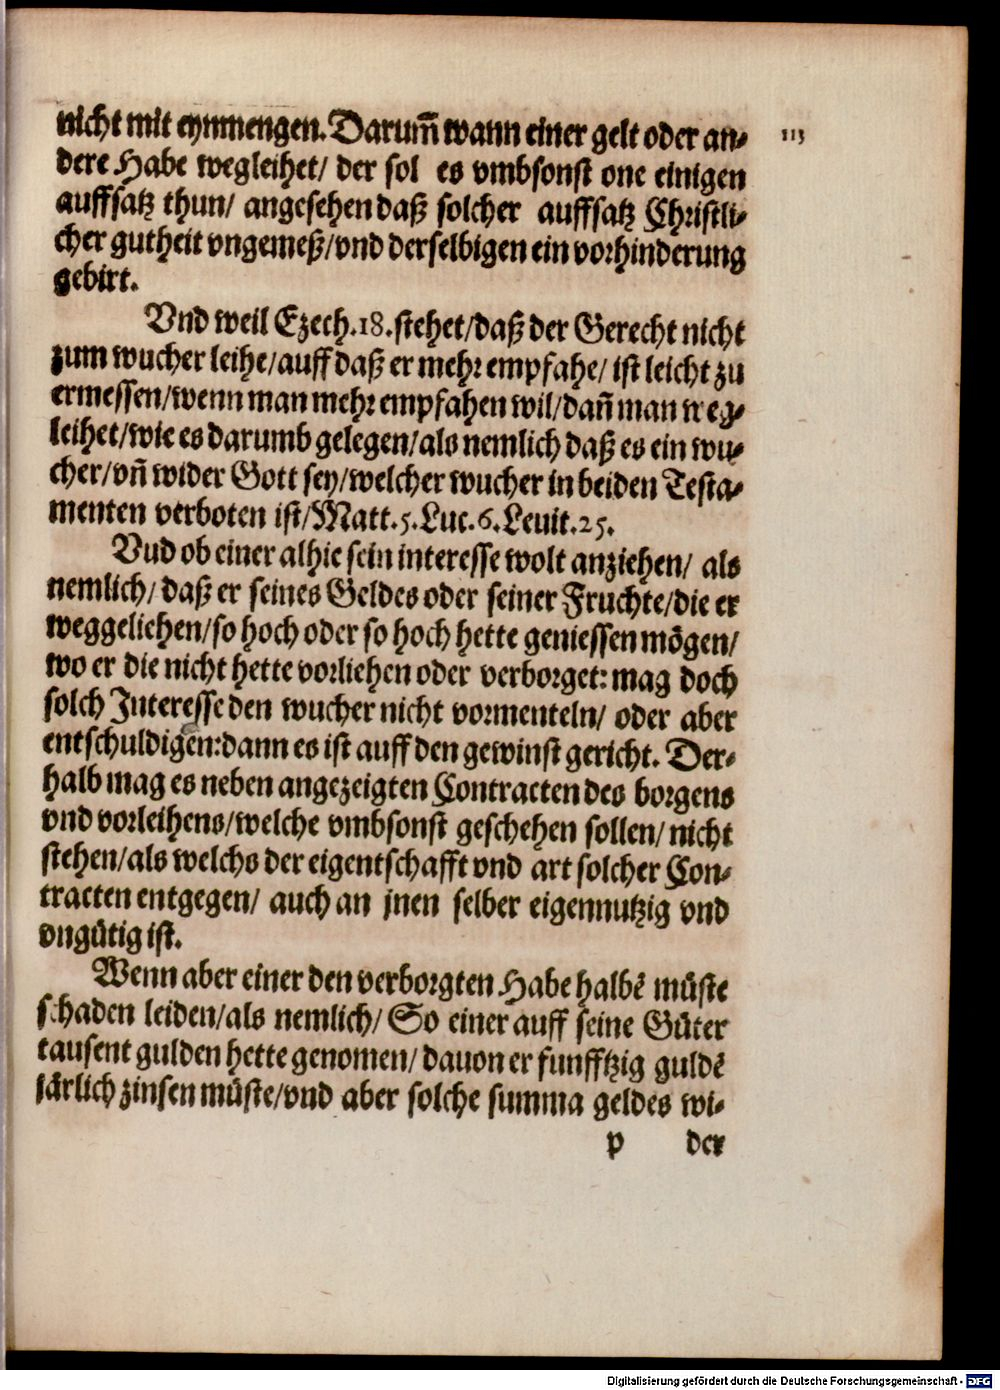 nicht mit eynmengen. Darum̅ wann einer gelt oder an-
113
dere Habe wegleihet/ der sol es vmbsonst one einigen
auffsatz thun/ angesehen daß solcher auffsatz Christli-
cher gutheit vngemeß/vnd derselbigen ein vorhinderung
gebirt.
Vnd weil Ezech.18.stehet/daß der Gerecht nicht
zum wucher leihe/auff daß er mehr empfahe/ ist leicht zu
ermessen/wenn man mehr empfahen wil/dañ man weg-
leihet/wie es darumb gelegen/als nemlich daß es ein wu-
cher/vñ wider Gott sey/welcher wucher in beiden Testa-
menten verboten ist/Matt.5.Luc.6.Leuit.25.
Vud ob einer alhie sein interesse wolt anziehen/ als
nemlich/ daß er seines Geldes oder seiner Fruchte/die er
weggeliehen/so hoch oder so hoch hette geniessen mögen/
wo er die nicht hette vorliehen oder verborget: mag doch
solch Interesse den wucher nicht vormenteln/ oder aber
entschuldigen:dann es ist auff den gewinst gericht. Der-
halb mag es neben angezeigten Contracten des borgens
vnd vorleihens/welche vmbsonst geschehen sollen/ nicht
stehen/als welchs der eigentschafft vnd art solcher Con-
tracten entgegen/ auch an jnen selber eigennutzig vnd
vngütig ist.
Wenn aber einer den verborgten Habe halbẽ müste
schaden leiden/als nemlich/ So einer auff seine Güter
tausent gulden hette genomen/ dauon er funfftzig guldẽ
järlich zinsen müste/vnd aber solche summa geldes wi-
p der
Digitalisierung gefördert durch die Deutsche Forschungsgemeinschaft - DFG